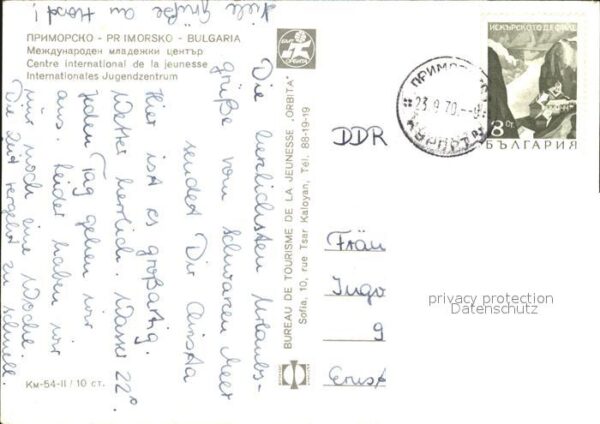 Viele Grüße an Horst!
ПРИМОРСКО - PRIMORSKO - BULGARIA
Международен младежки център
Centre international de la jeunesse
Internationales Jugendzentrum
Die herzlichsten Urlaubs-
grüße vom schwarzen Meer
sendet Dir Christa
Hier ist es großartig.
Wetter herrlich. Wasser 22°.
Jeden Tag gehen wir
aus. Leider haben wir
nur noch eine Woche.
Die Zeit vergeht zu schnell.
Км-54-II / 10 ст.
ORBITA
BUREAU DE TOURISME DE LA JEUNESSE „ORBITA"
Sofia, 10, rue Tsar Kaloyan, Tél. 88-19-19
ИСКЪРСКОТО ДЕФИЛЕ
8 ст.
БЪЛГАРИЯ
23.9.70
DDR
Frau
Inge
9
Ernst
privacy protection
Datenschutz